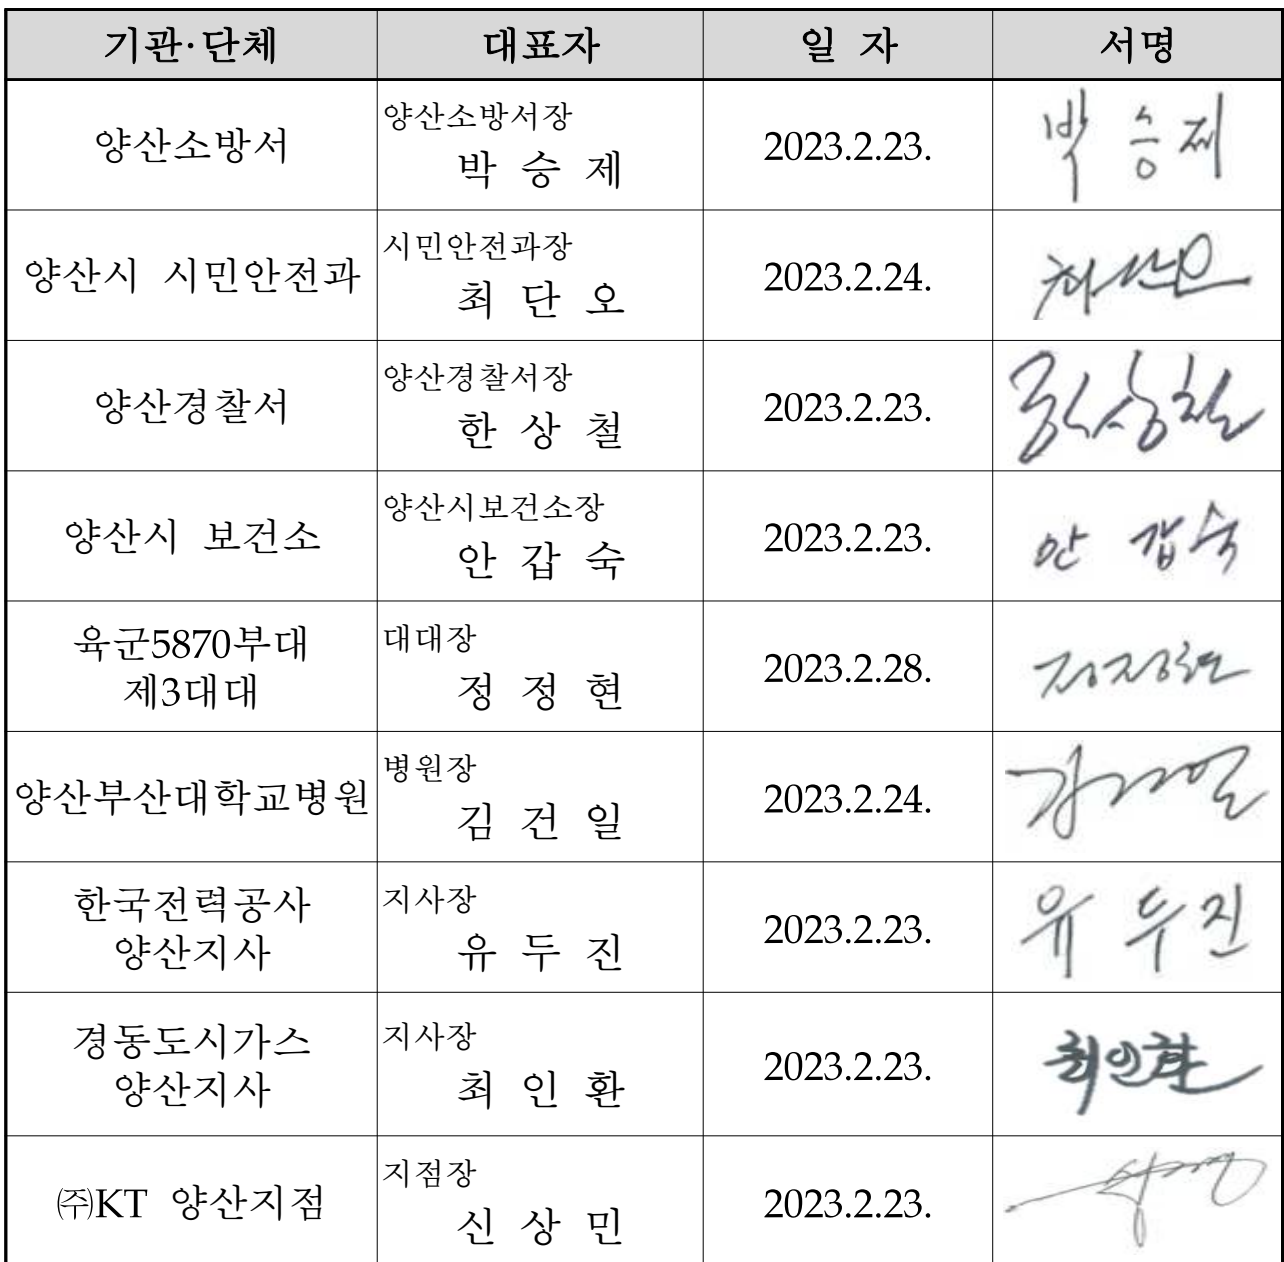 기관·단체 대표자 일 자 서명
양산소방서 양산소방서장 박 승 제 2023.2.23. 박 승 제
양산시 시민안전과 시민안전과장 최 단 오 2023.2.24.
양산경찰서 양산경찰서장 한 상 철 2023.2.23. 한상철
양산시 보건소 양산시보건소장 안 갑 숙 2023.2.23. 안 갑숙
육군5870부대
제3대대 대대장 정 정 현 2023.2.28. 정정현
양산부산대학교병원 병원장 김 건 일 2023.2.24.
한국전력공사
양산지사 지사장 유 두 진 2023.2.23. 유 두 진
경동도시가스
양산지사 지사장 최 인 환 2023.2.23. 최인환
㈜KT 양산지점 지점장 신 상 민 2023.2.23.